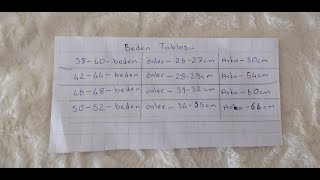 Beden Tablosu
38-40-beden önler-26-27cm Arka-50cm
42-44-beden önler-28-29cm Arka-54cm
46-48-beden önler-31-32cm Arka-60cm
50-52-beden önler-34-35cm Arka-66cm